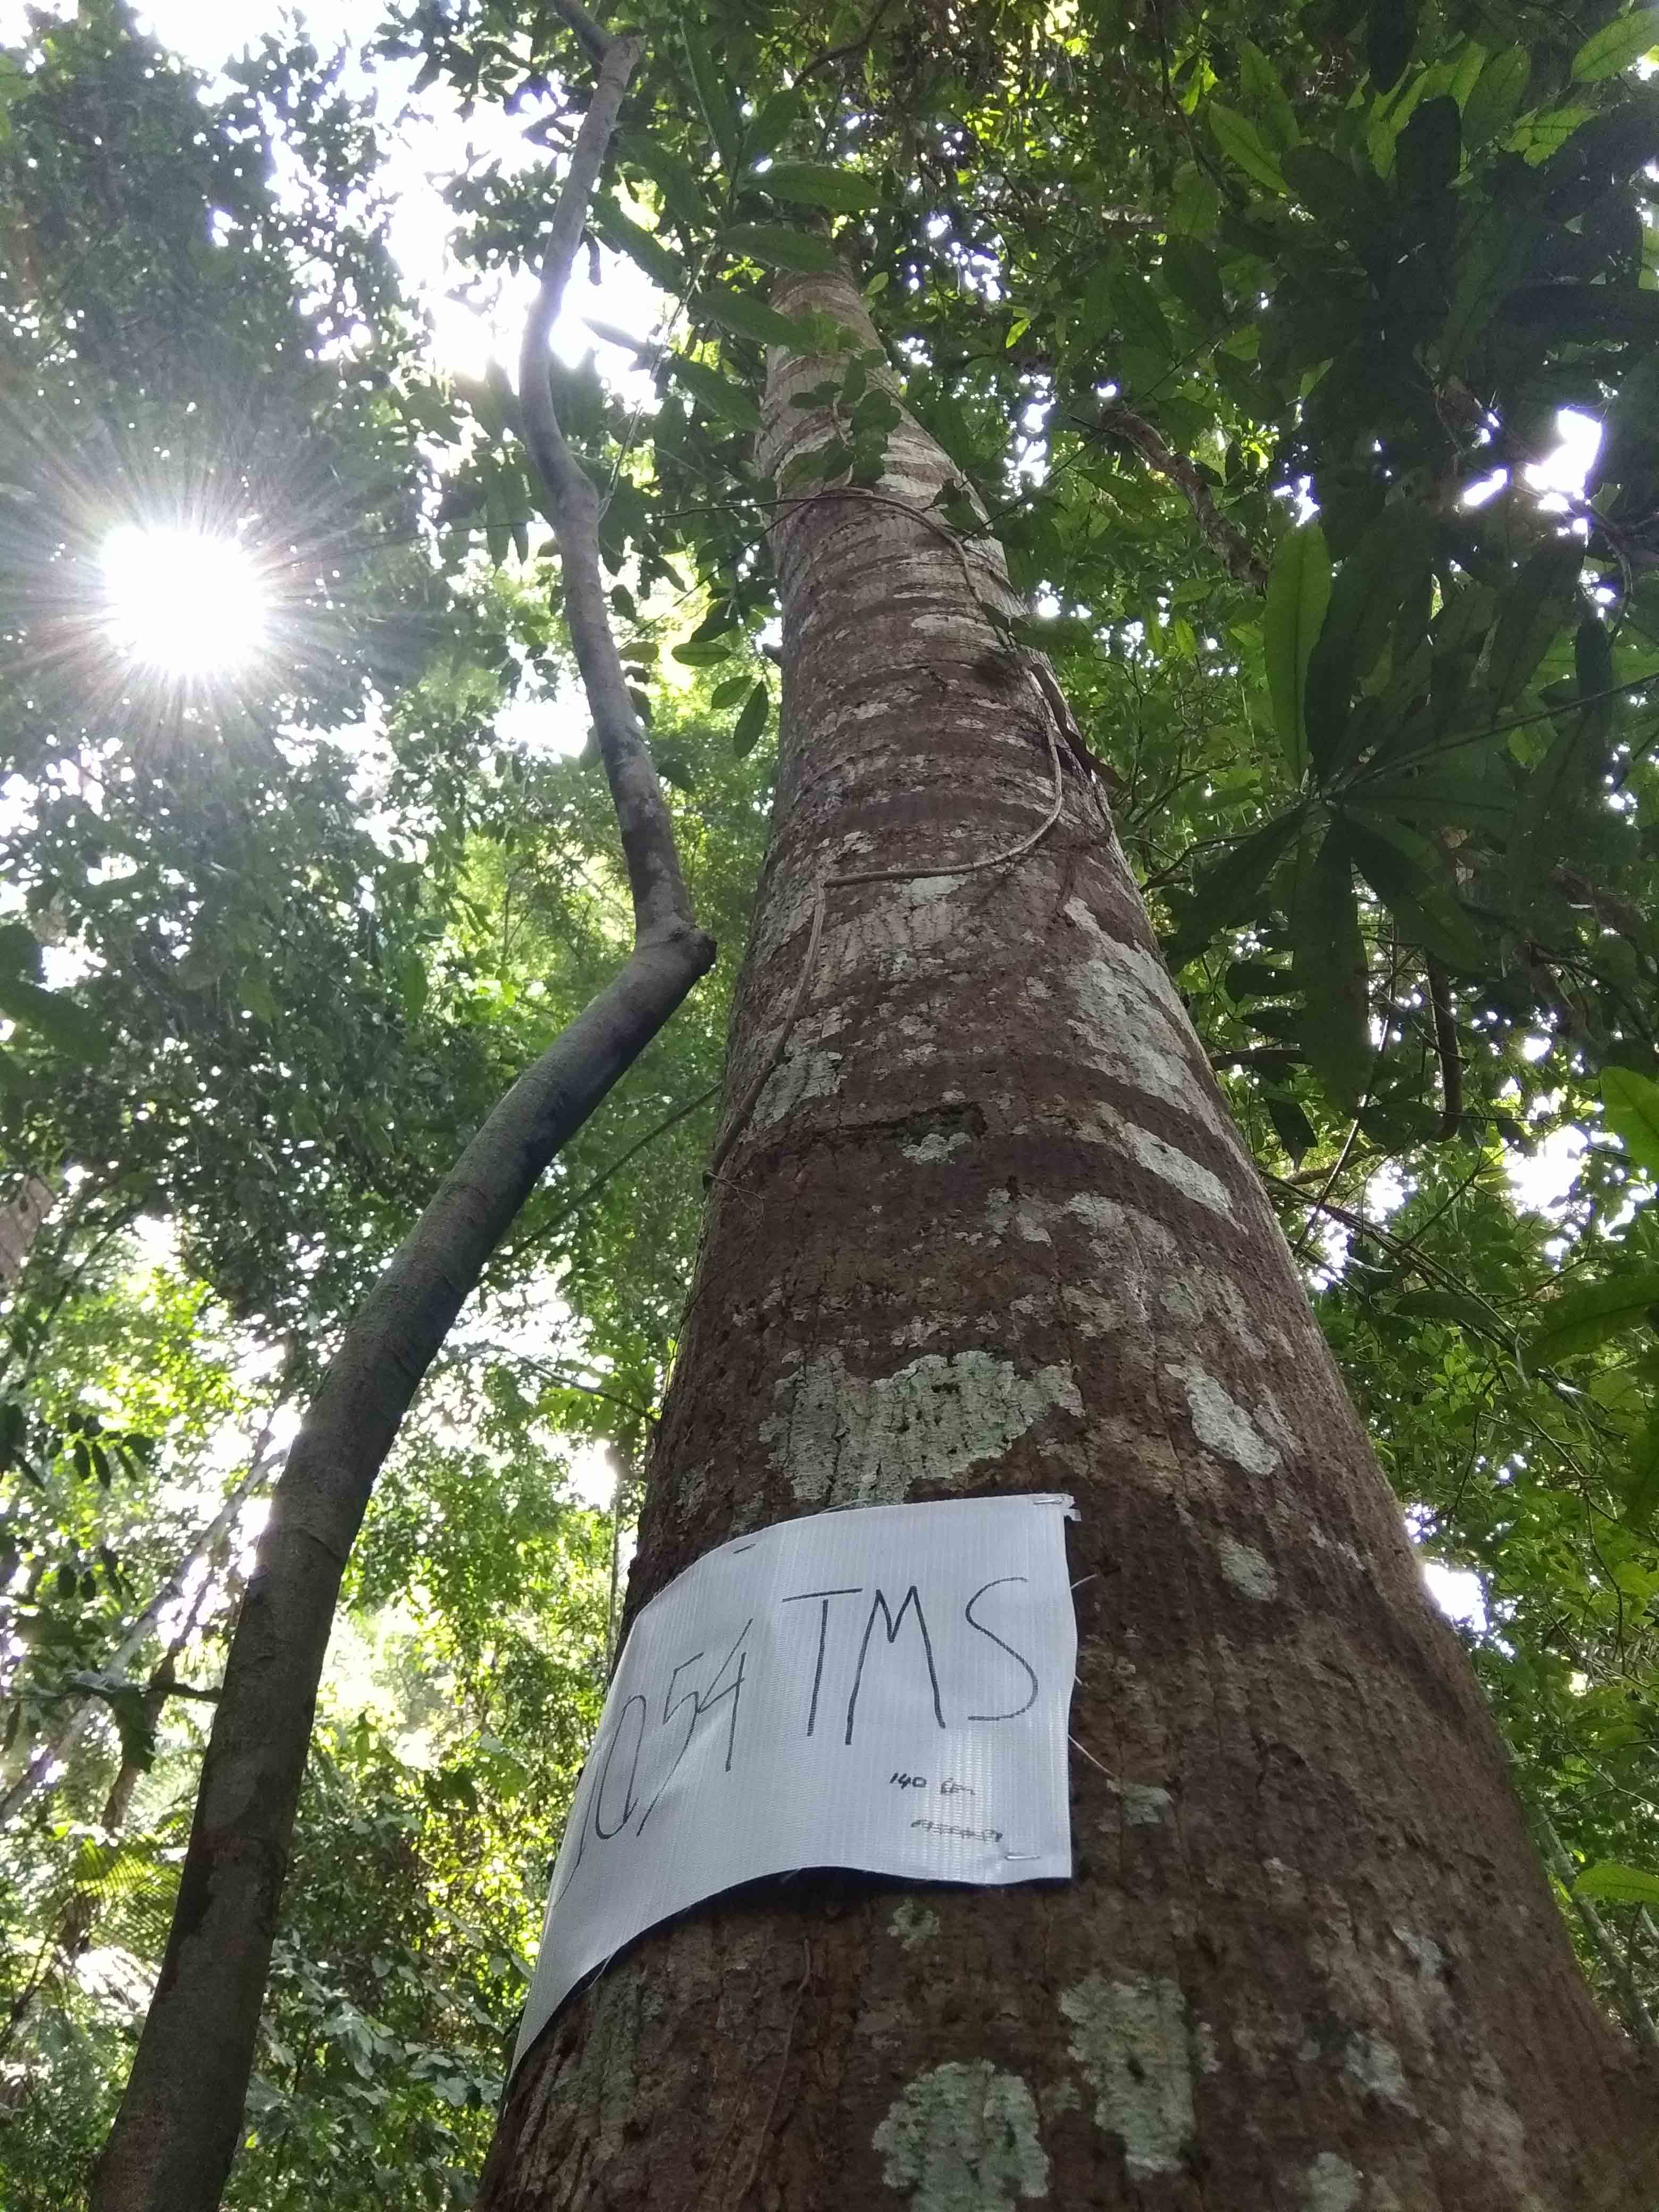 1054 TMS
140 cm